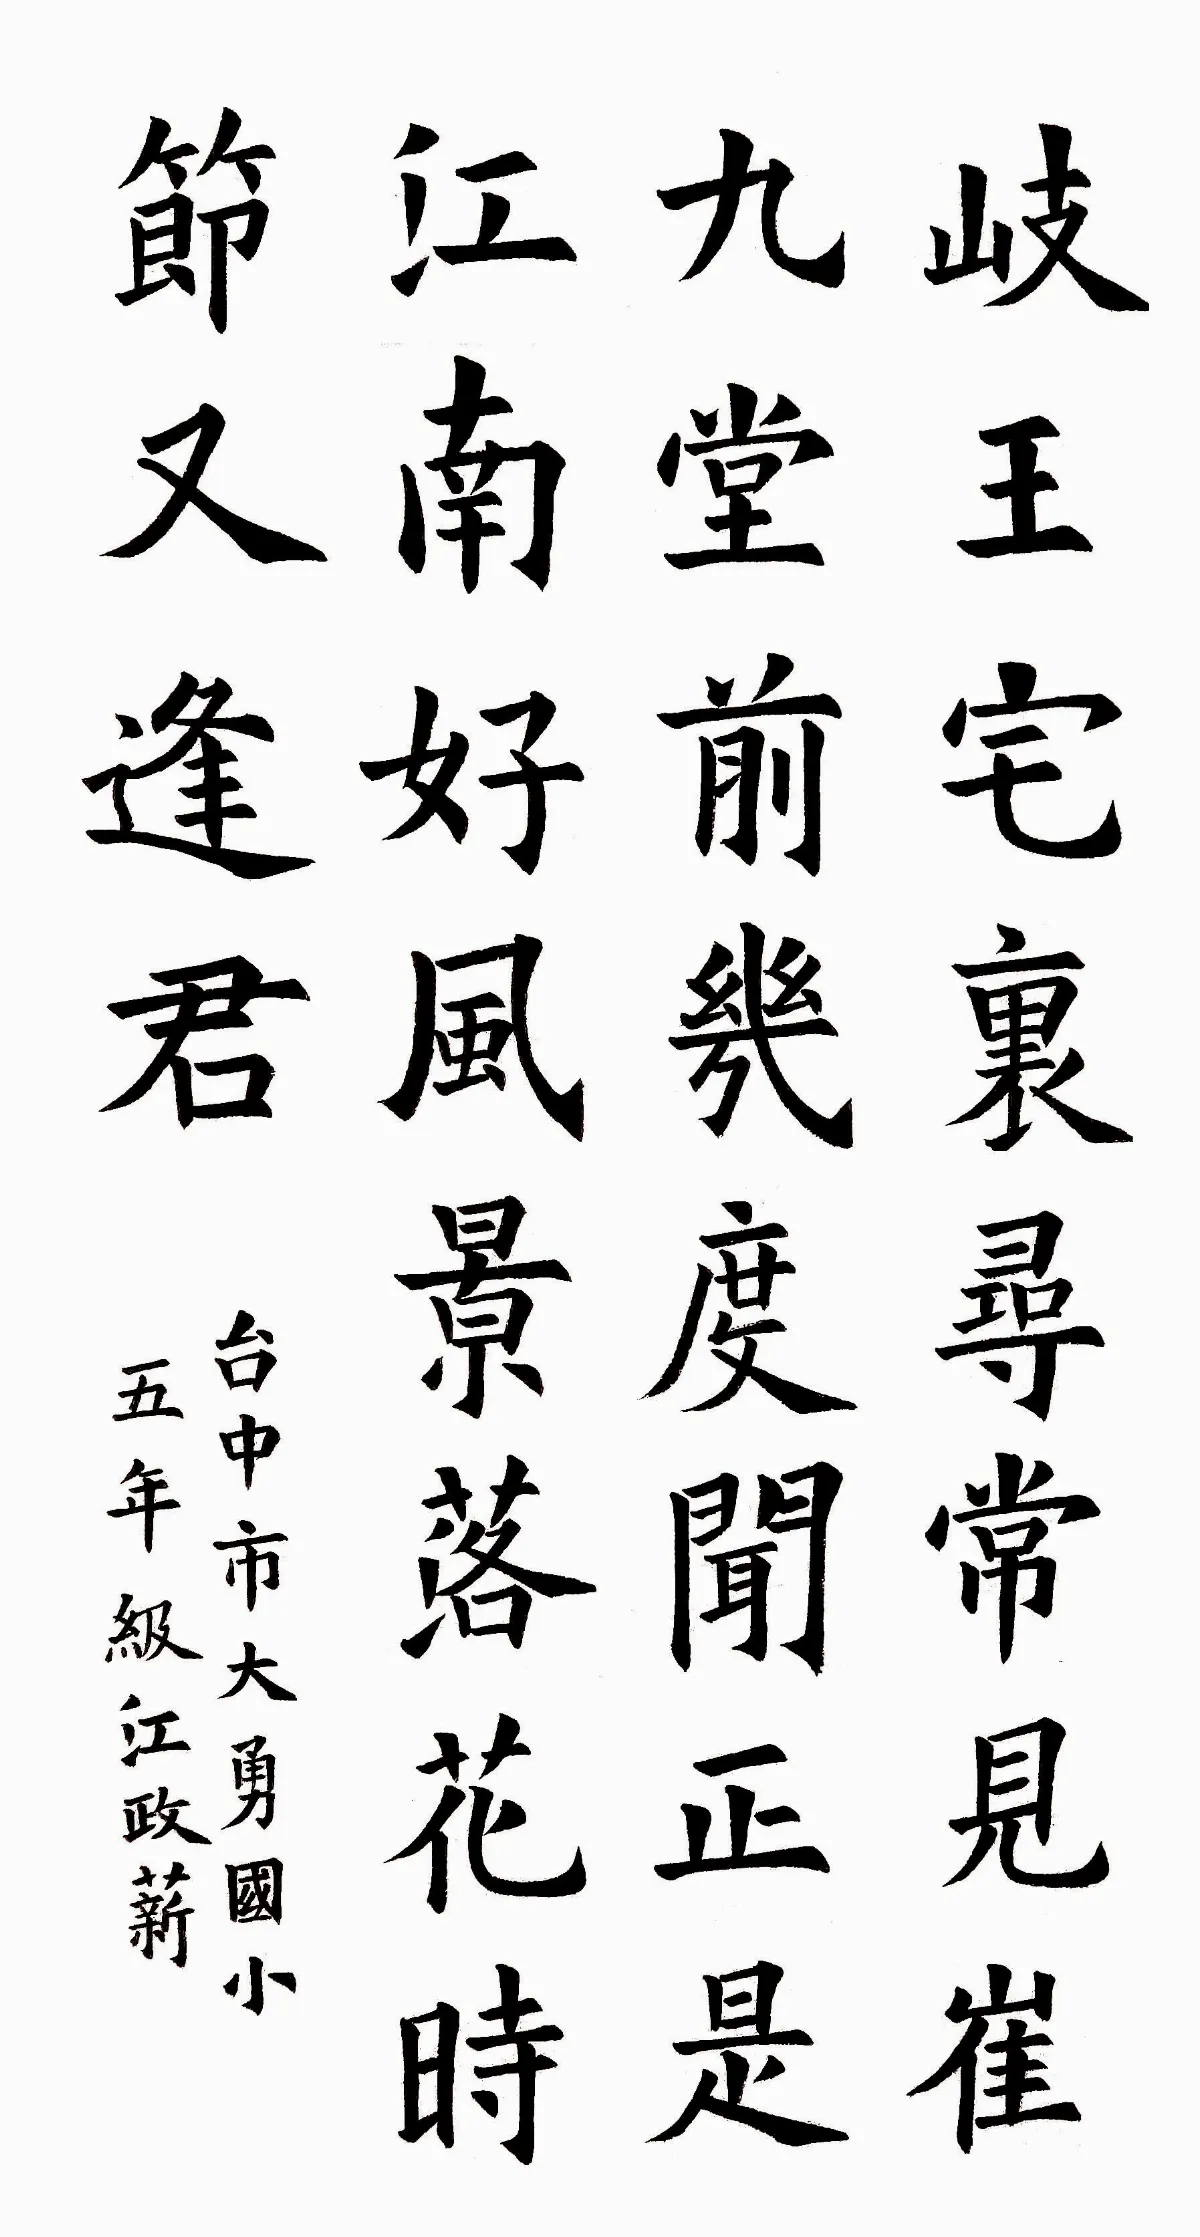 歧王宅裏尋常見崔
九堂前幾度聞正是
江南好風景落花時
節又逢君
台中市大勇國小
五年級江政薪